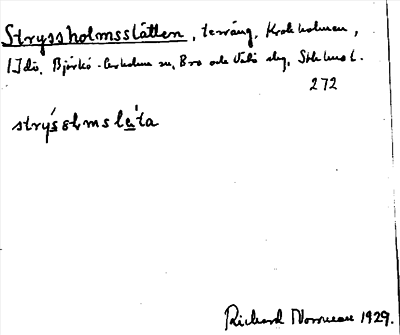 Stryssholmsslåtten, terräng, Krokholmen,
IJdö, Björkö-Arholma sn, Bro och Vätö skg, Sthlms l.
272
strýsɷlmslɷ̀ta
Richard Norrman 1929.